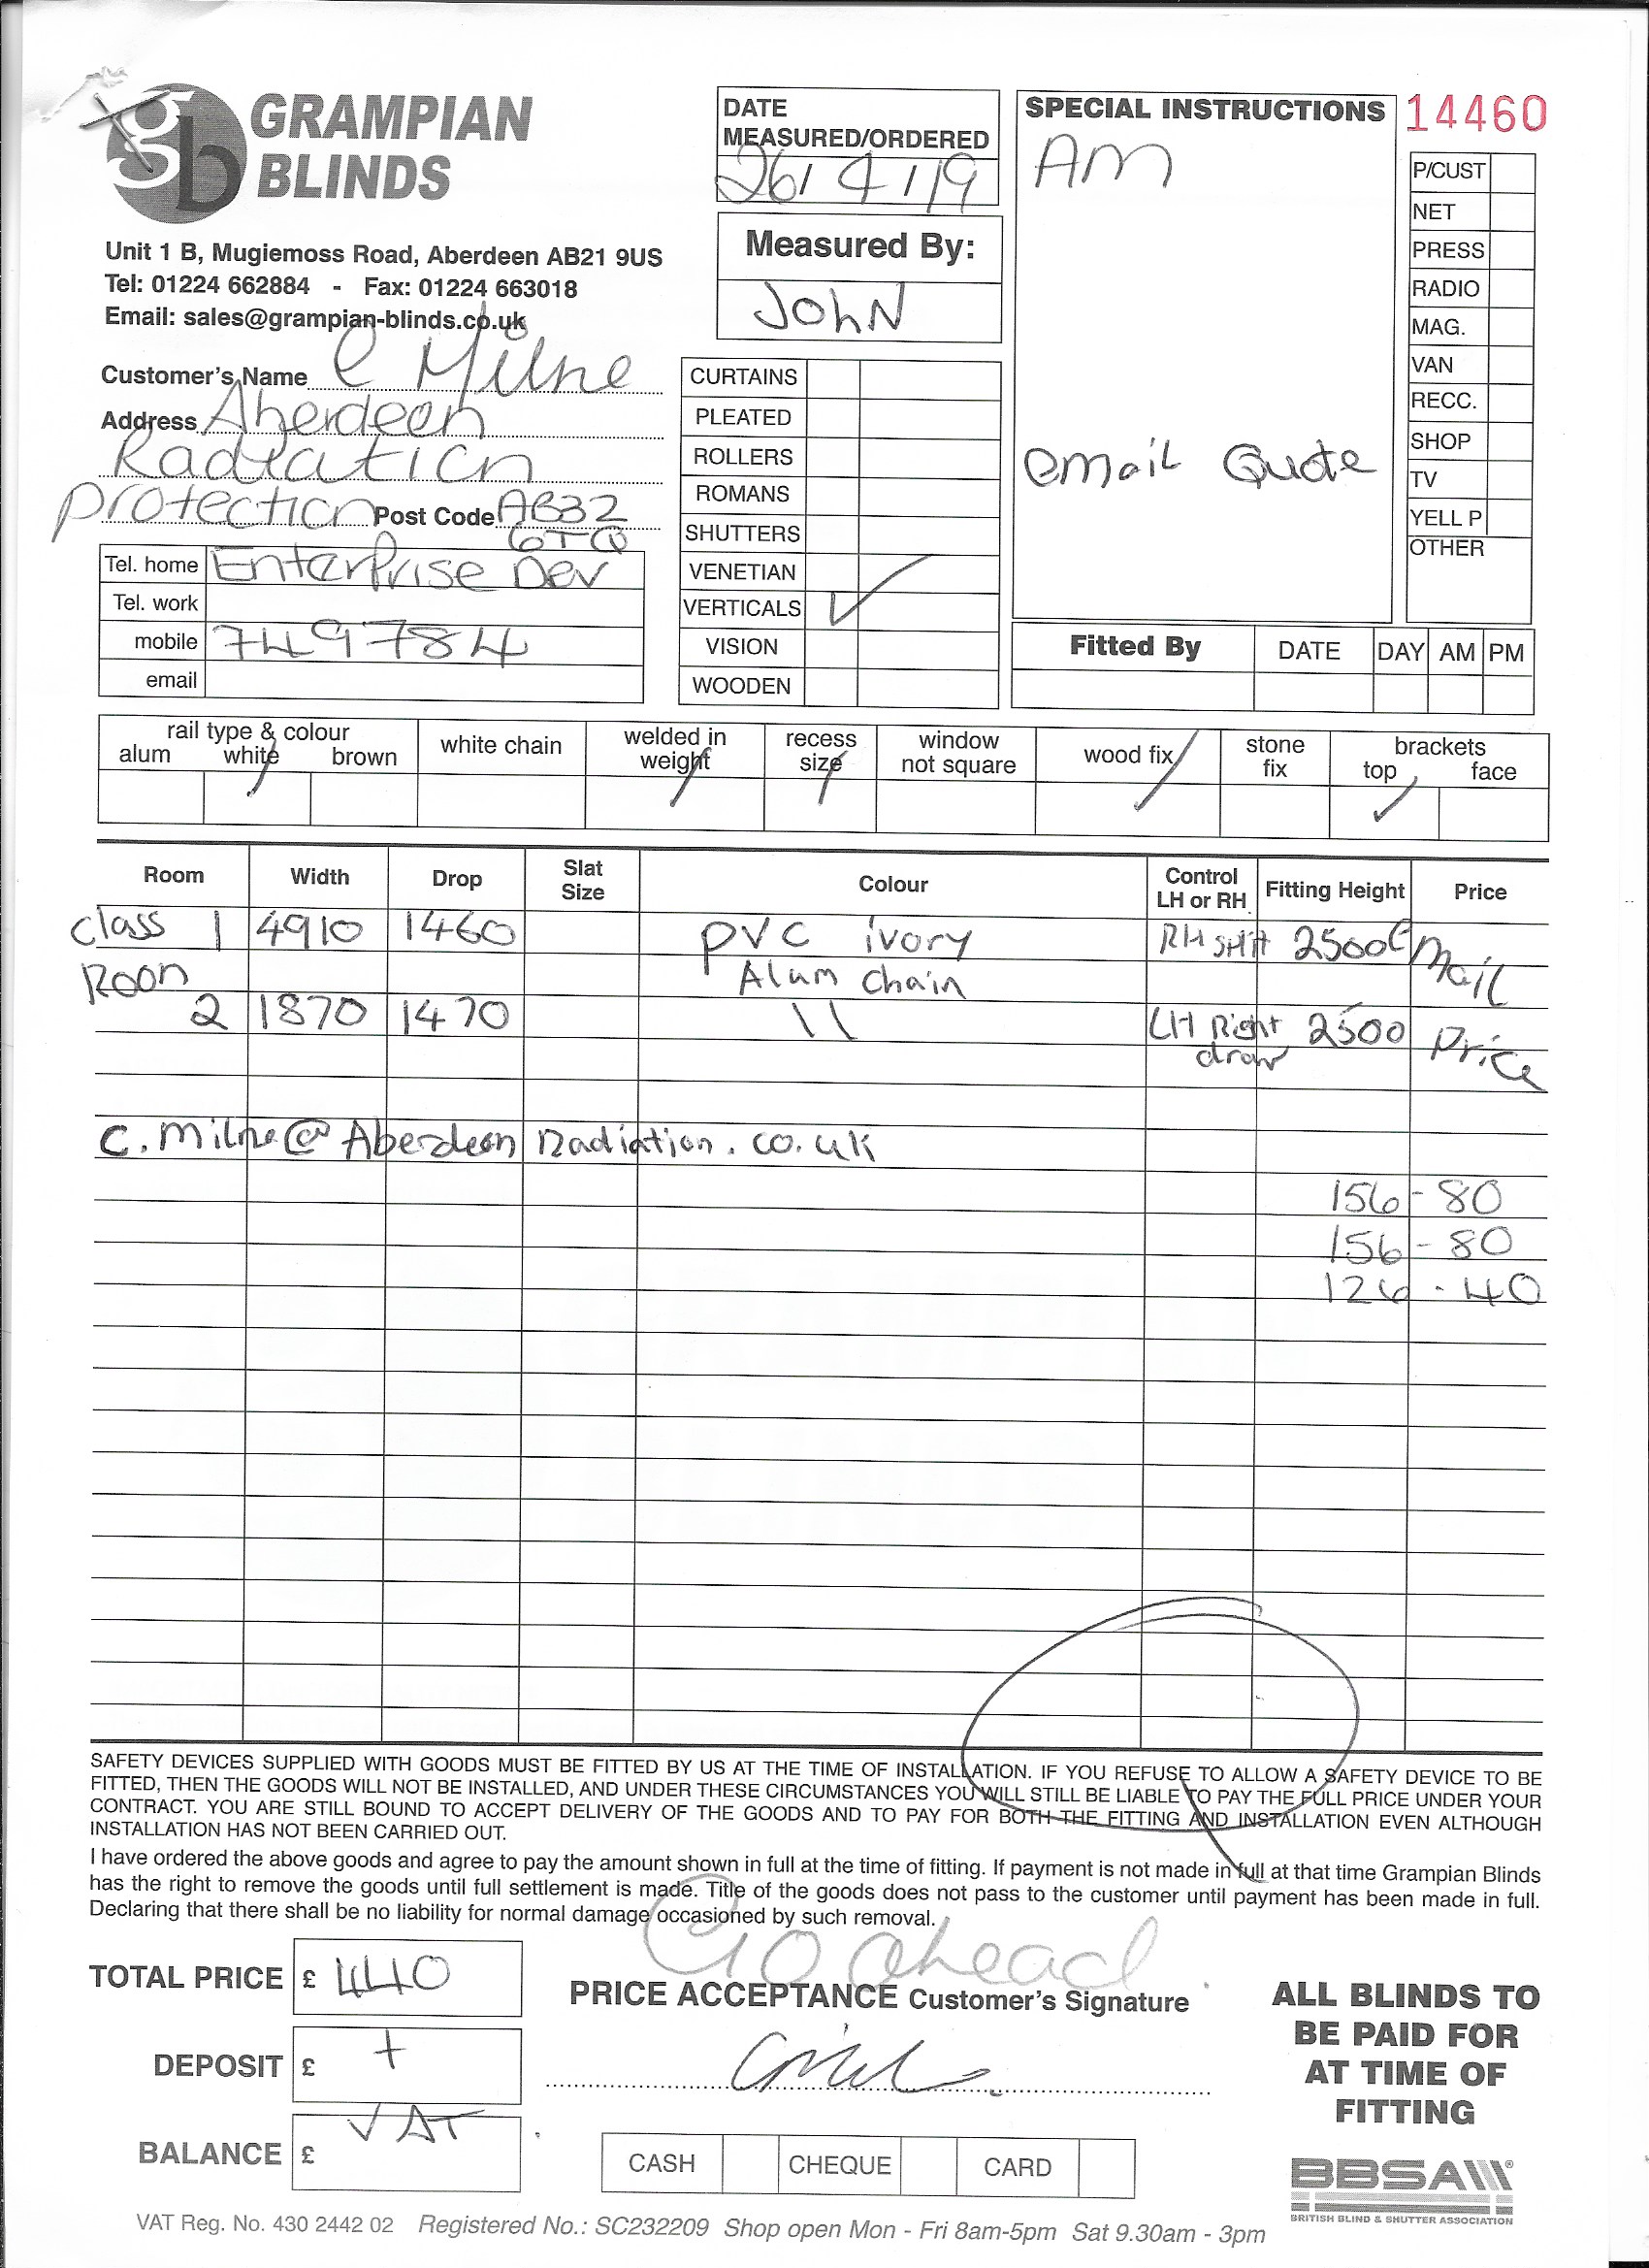 GRAMPIAN
BLINDS
Unit 1 B, Mugiemoss Road, Aberdeen AB21 9US
Tel: 01224 662884 - Fax: 01224 663018
Email: sales@grampian-blinds.co.uk
DATE
MEASURED/ORDERED
26/4/19
Measured By:
JOHN
SPECIAL INSTRUCTIONS
AM
email Quote
14460
P/CUST
NET
PRESS
RADIO
MAG.
VAN
RECC.
SHOP
TV
YELL P
OTHER
Customer's Name C Milne
Address Aberdeen
Radiation
Protection Post Code AB32
6TQ
Tel. home Enterprise Dev
Tel. work
mobile 749784
email
CURTAINS
PLEATED
ROLLERS
ROMANS
SHUTTERS
VENETIAN
VERTICALS
VISION
WOODEN
Fitted By DATE DAY AM PM
rail type & colour
alum white brown
white chain
welded in
weight
recess
size
window
not square
wood fix
stone
fix
brackets
top face
Room Width Drop Slat Size Colour Control LH or RH Fitting Height Price
Class 1 4910 1460 PVC ivory RH split 2500 email
Room Alum Chain
2 1870 1470 \\ LH Right 2500 Price
draw
C.Milne@AberdeenRadiation.co.uk
156-80
156-80
126-40
SAFETY DEVICES SUPPLIED WITH GOODS MUST BE FITTED BY US AT THE TIME OF INSTALLATION. IF YOU REFUSE TO ALLOW A SAFETY DEVICE TO BE
FITTED, THEN THE GOODS WILL NOT BE INSTALLED, AND UNDER THESE CIRCUMSTANCES YOU WILL STILL BE LIABLE TO PAY THE FULL PRICE UNDER YOUR
CONTRACT. YOU ARE STILL BOUND TO ACCEPT DELIVERY OF THE GOODS AND TO PAY FOR BOTH THE FITTING AND INSTALLATION EVEN ALTHOUGH
INSTALLATION HAS NOT BEEN CARRIED OUT.
I have ordered the above goods and agree to pay the amount shown in full at the time of fitting. If payment is not made in full at that time Grampian Blinds
has the right to remove the goods until full settlement is made. Title of the goods does not pass to the customer until payment has been made in full.
Declaring that there shall be no liability for normal damage occasioned by such removal.
Go ahead
TOTAL PRICE £ 440
PRICE ACCEPTANCE Customer's Signature
DEPOSIT £ +
BALANCE £ VAT
CASH CHEQUE CARD
ALL BLINDS TO
BE PAID FOR
AT TIME OF
FITTING
BBSA
BRITISH BLIND & SHUTTER ASSOCIATION
VAT Reg. No. 430 2442 02 Registered No.: SC232209 Shop open Mon - Fri 8am-5pm Sat 9.30am - 3pm